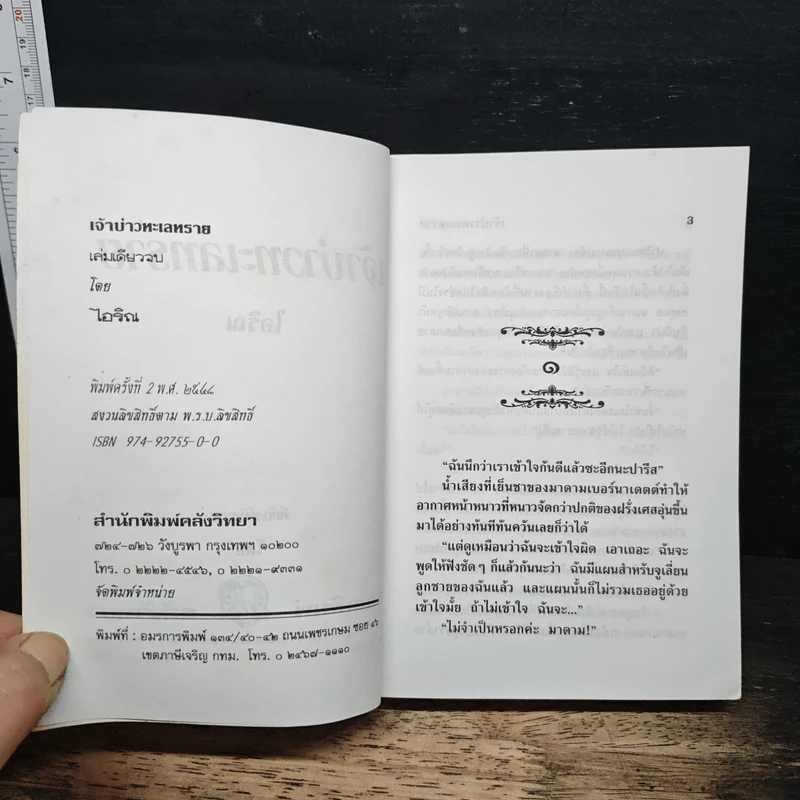 เจ้าบ่าวทะเลทราย
เล่มเดียวจบ
โดย
ไอริณ
พิมพ์ครั้งที่ 2 พ.ศ. ๒๕๔๘
สงวนลิขสิทธิ์ตาม พ.ร.บ.ลิขสิทธิ์
ISBN 974-92755-0-0
สำนักพิมพ์คลังวิทยา
๗๒๔-๗๒๖ วังบูรพา กรุงเทพฯ ๑๐๒๐๐
โทร. ๐ ๒๒๒๒-๔๕๔๖, ๐ ๒๒๒๑-๙๓๓๑
จัดพิมพ์จำหน่าย
พิมพ์ที่ : อมรการพิมพ์ ๑๓๔/๔๐-๔๒ ถนนเพชรเกษม ซอย ๔๖
เขตภาษีเจริญ กทม. โทร. ๐ ๒๔๖๗-๑๑๑๐
3
๑
“ฉันนึกว่าเราเข้าใจกันดีแล้วซะอีกนะปารีส”
น้ำเสียงที่เย็นชาของมาดามเบอร์นาเดตต์ทำให้
อากาศหน้าหนาวที่หนาวจัดกว่าปกติของฝรั่งเศสอุ่นขึ้น
มาได้อย่างทันทีทันควันเลยก็ว่าได้
“แต่ดูเหมือนว่าฉันจะเข้าใจผิด เอาเถอะ ฉันจะ
พูดให้ฟังชัดๆ ก็แล้วกันนะว่า ฉันมีแผนสำหรับจูเลี่ยน
ลูกชายของฉันแล้ว และแผนนั้นก็ไม่รวมเธออยู่ด้วย
เข้าใจมั้ย ถ้าไม่เข้าใจ ฉันจะ...”
“ไม่จำเป็นหรอกค่ะ มาดาม!”
7
20
19
18
17